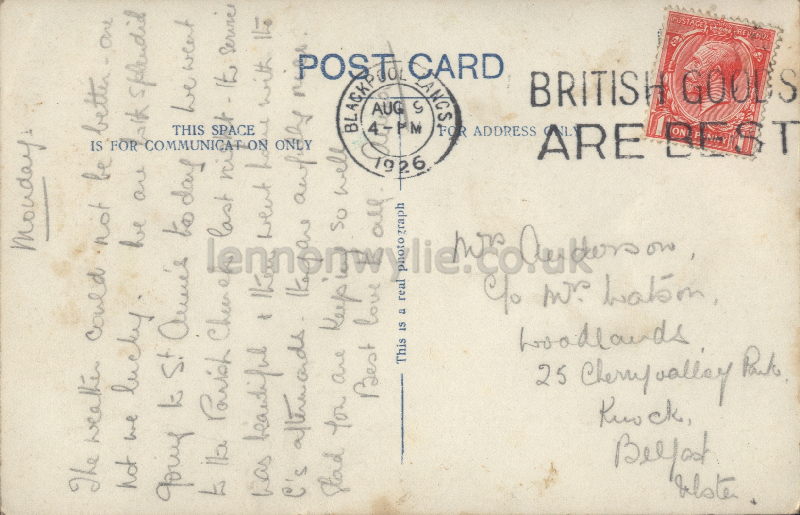 POST CARD
THIS SPACE
IS FOR COMMUNICATION ONLY
FOR ADDRESS ONLY
This is a real photograph
POSTAGE REVENUE
ONE PENNY
BLACKPOOL LANCS
AUG 9
4-PM
1926
BRITISH GOODS
ARE BEST
Monday.
The weather could not be better - are
not we lucky. We are with splendid
going to St Anne's today. We went
to the Parish Church last night - the service
was beautiful & then went home with the
C's afterwards. They are awfully nice.
Glad you are keeping so well.
Best love to all.
Mrs Anderson,
c/o Mrs Watson,
Woodlands,
25 Cherryvalley Park,
Knock,
Belfast
Ulster.
lennonwylie.co.uk